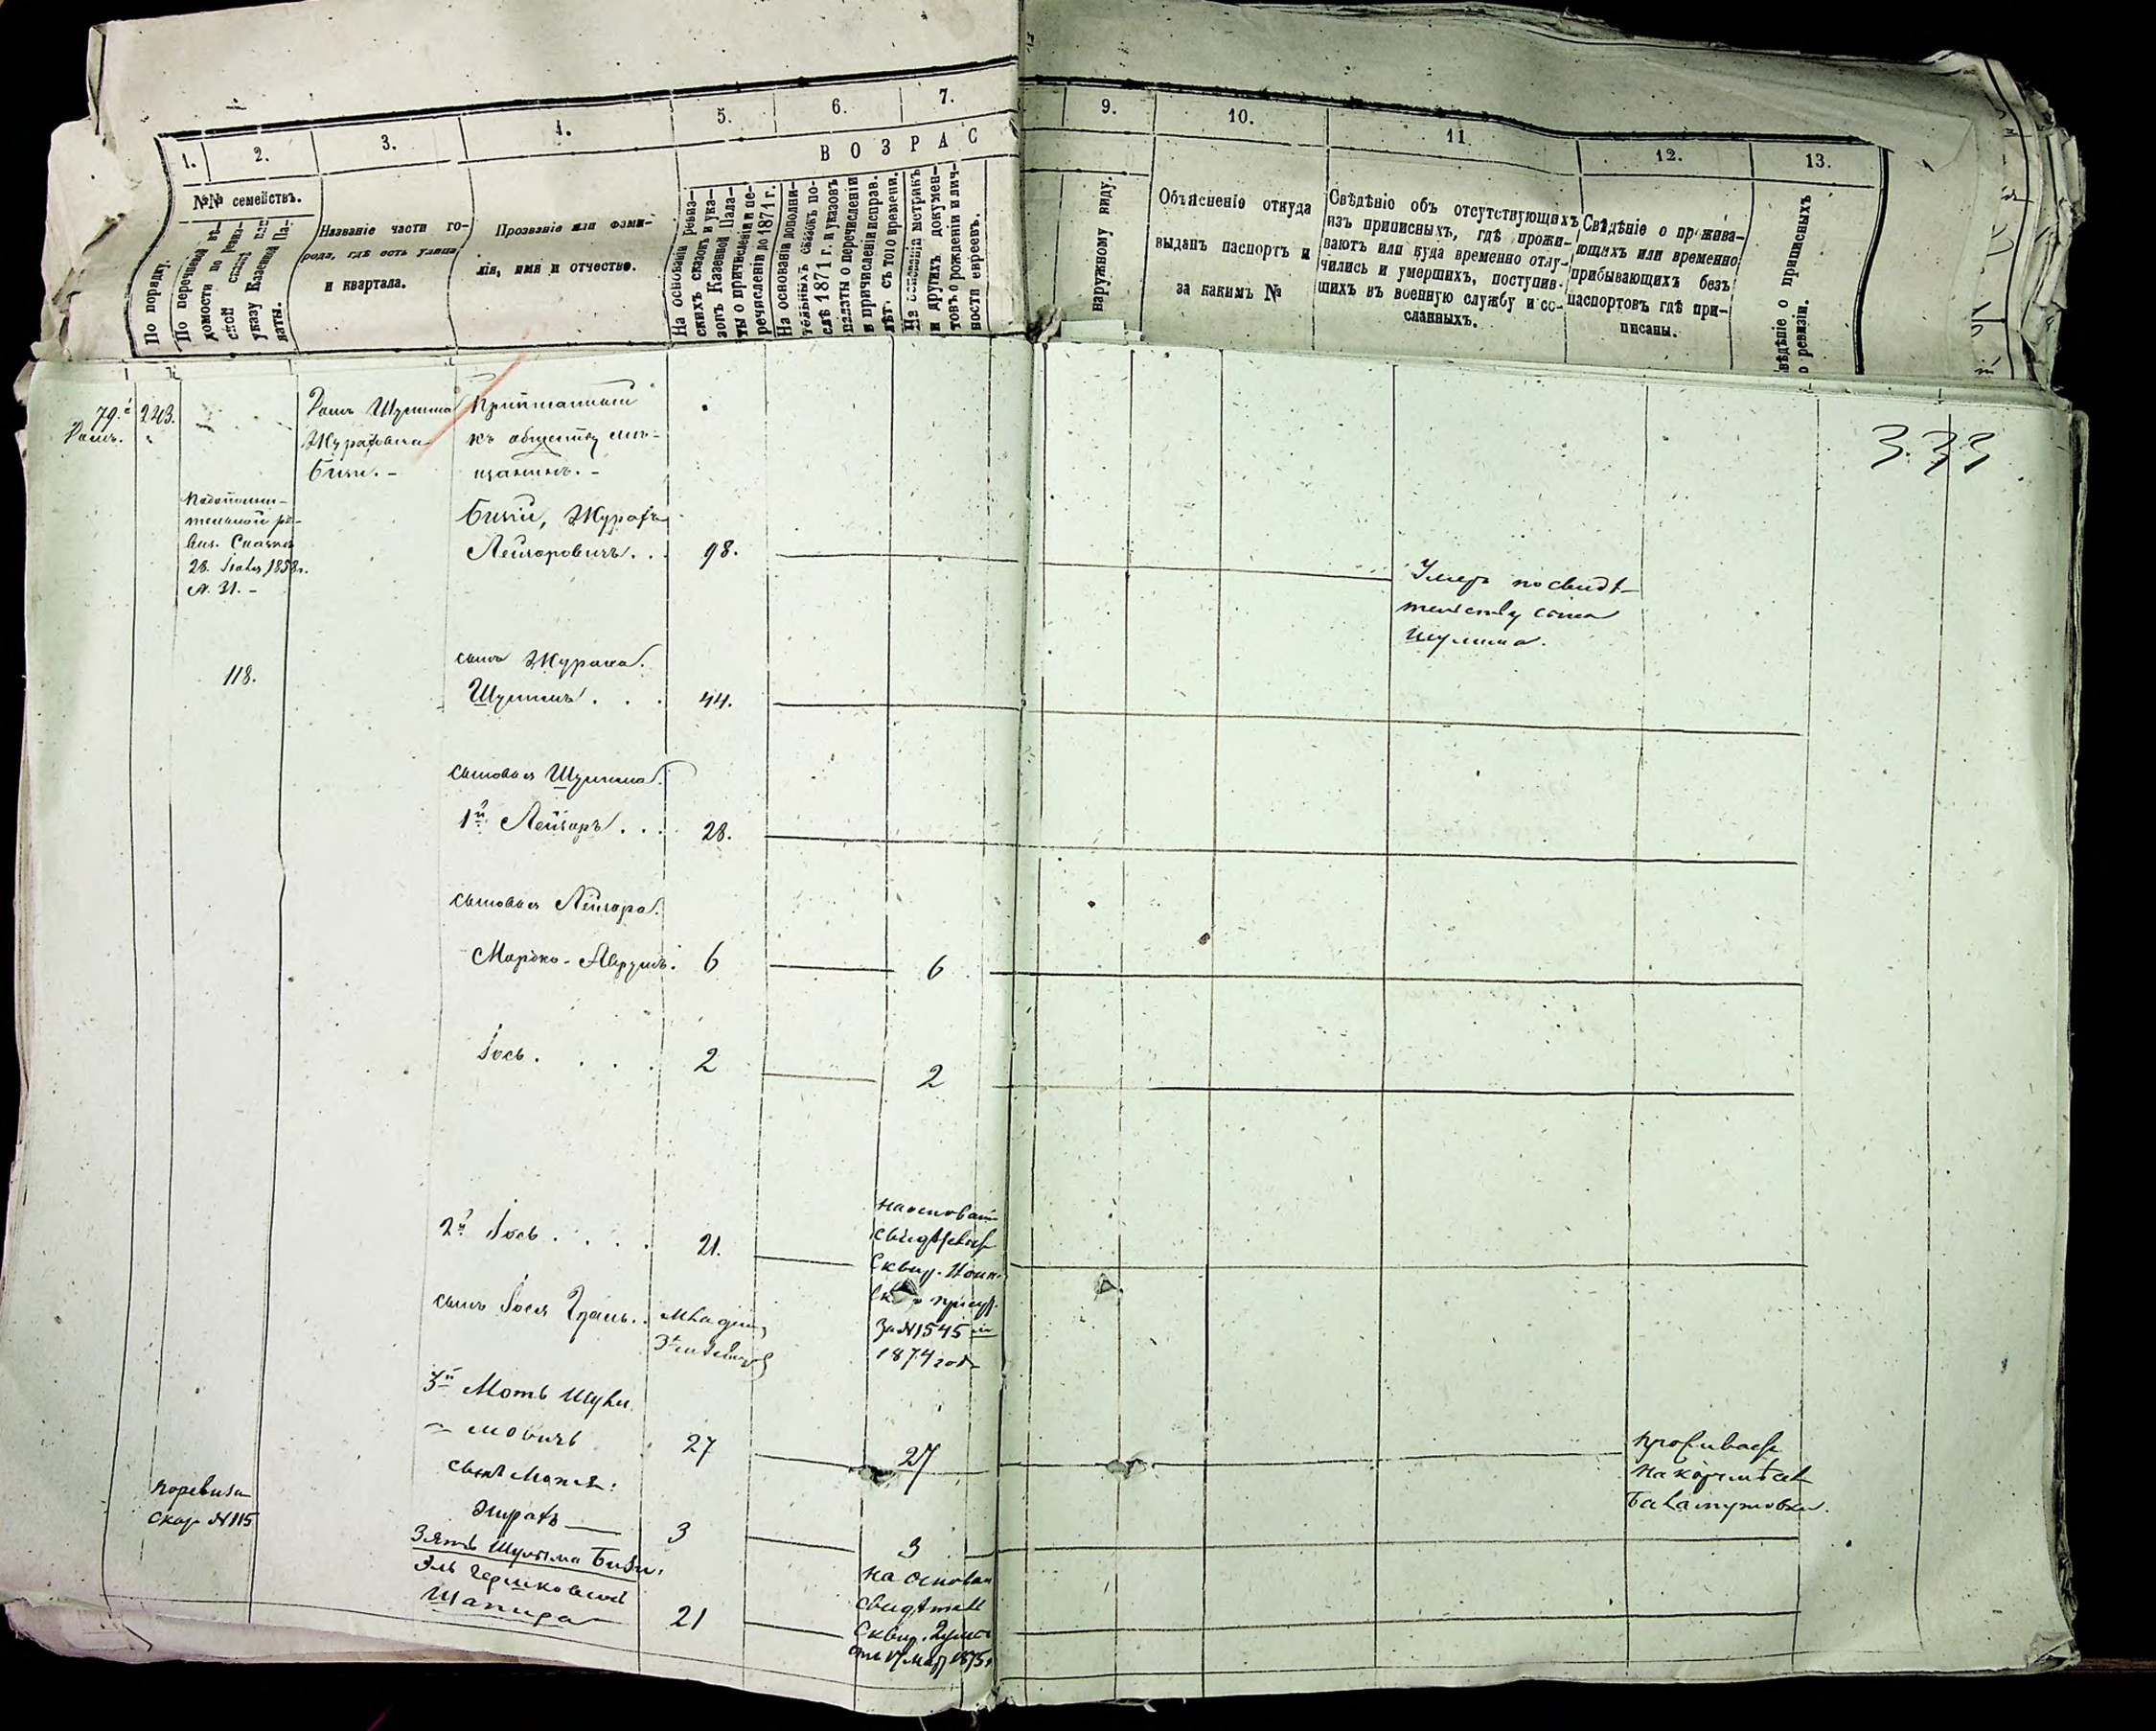 1.
2.
3.
4.
5.
6.
7.
9.
10.
11.
12.
13.
ВОЗРАС
№№ семействъ.
По порядку.
По перечневой вѣ-
домости по ревиз-
ской
указу Казенной Па-
латы.
Названіе части го-
рода, гдѣ есть улица
и квартала.
Прозваніе или фами-
лія, имя и отчество.
На основаніи ревиз-
скихъ сказокъ и ука-
зовъ Казенной Пала-
ты о причисленіи и пе-
речисленіи до 1871 г.
На основаніи дополни-
тельныхъ сказокъ по-
слѣ 1871 г. и указовъ
палаты о перечисленіи
и причисленіи исправ.
лѣт. съ того времени.
На основаніи метрикъ
и другихъ докумен-
товъ о рожденіи и лич-
ности евреевъ.
наружному виду.
Объясненіе откуда
выданъ паспортъ и
за какимъ №
Свѣдѣніе объ отсутствующихъ
изъ приписныхъ, гдѣ прожи-
ваютъ или куда временно отлу-
чились и умершихъ, поступив-
шихъ въ военную службу и со-
сланныхъ.
Свѣдѣніе о прожива-
ющихъ или временно
прибывающихъ безъ
паспортовъ гдѣ при-
писаны.
вѣдѣніе о приписныхъ
о ревизіи.
79.й
Домъ.
243.
Домъ Шулима
Журавова
Бизи. -
къ обществу мѣ-
щанинъ. -
333
Бизи,
Лейзоровичъ . .
98.
28. 1858г.
№. 31. -
Умеръ по свидѣ-
тельству сына
Шулима.
118.
сынъ
Шулимъ . . .
44.
сыновья Шулима.
1й Лейзоръ . . .
28.
сыновья Лейзора.
Мордко-Аврумъ.
6
6
Іось. . . . .
2
2
2й Іось . . . .
21.
на основаніи
Сквир.
за №1545
1874 год
сынъ Іося
3й Моть Шули
мовичъ
27
27
проживаетъ
на
сынъ Мотя:
3
3
по ревизи
Скаж №115
Зять Шулима Бизи:
Эль Гершковичъ
Шапира
21
на основан
Сквир.
отъ 17 Мар 1875